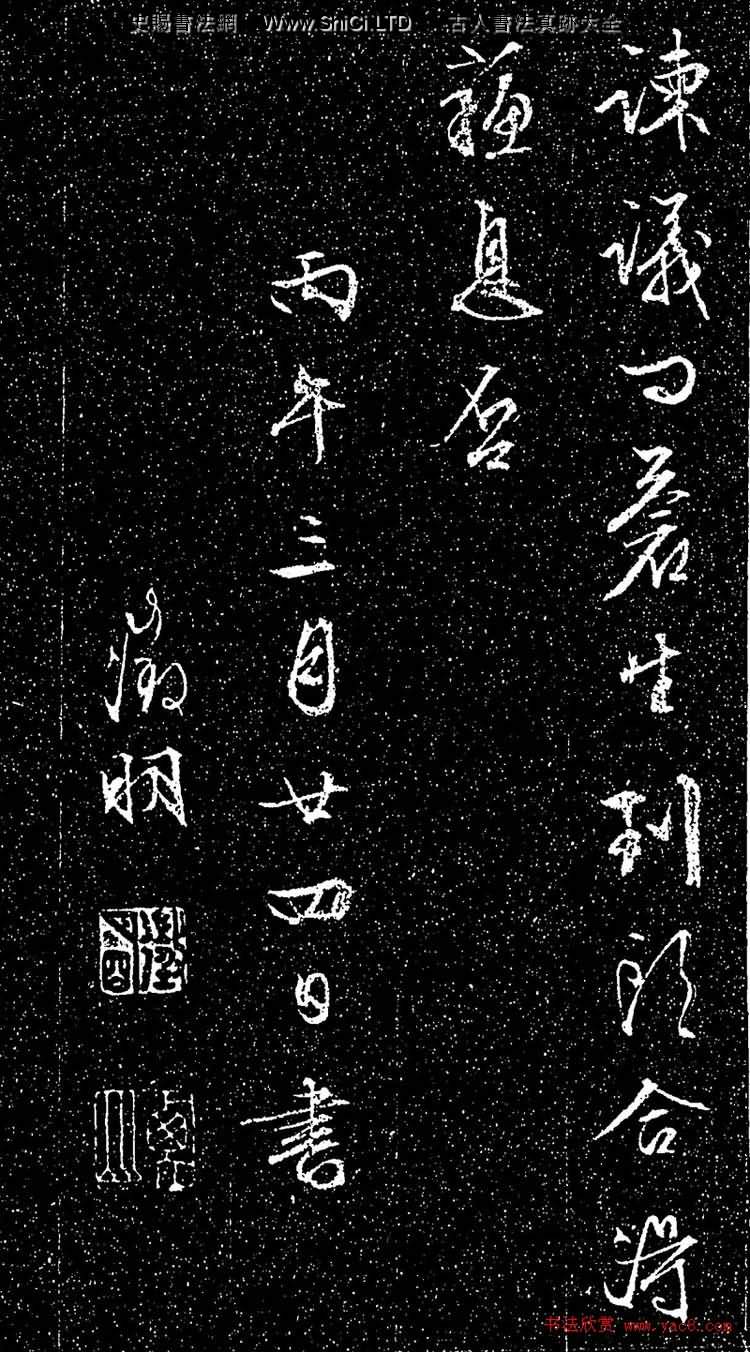 史賜書法網 Www.ShiCi.LTD 古人書法真跡大全
諫議問蒼生到頭合得
蘇息否
丙午三月廿四日書
徵明
书法欣赏 www.yac8.com